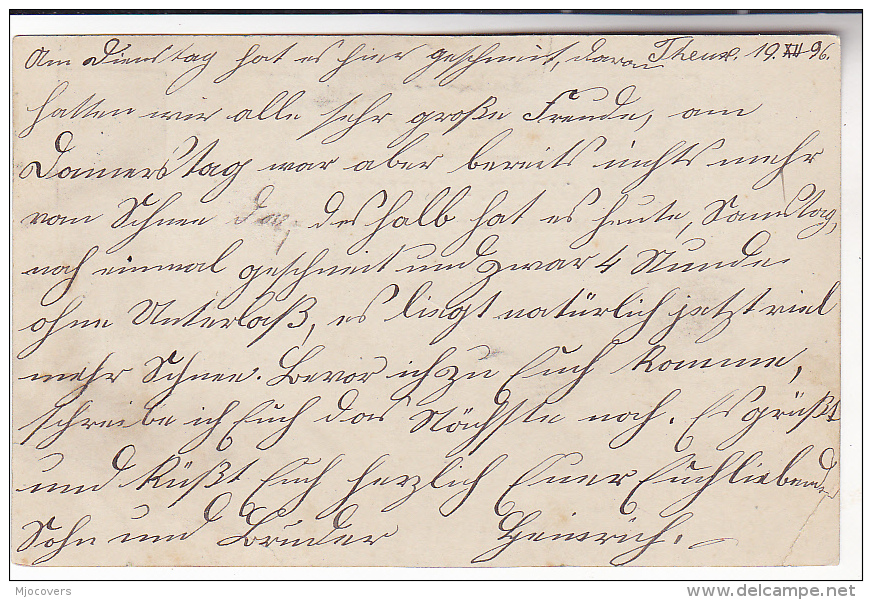 Am Dienstag hat es hier geschneit, daran Theux. 19. XII 96.
hatten wir alle sehr große Freude, am
Donnerstag war aber bereits nichts mehr
vom Schnee da, deshalb hat es heute, Samstag,
noch einmal geschneit und zwar 4 Stunden
ohne Unterlaß, es liegt natürlich jetzt viel
mehr Schnee. Bevor ich zu Euch komme,
schreibe ich Euch das Nächste noch. Es grüßt
und küßt Euch herzlich Euer Euchliebender
Sohn und Bruder Heinrich.
Mjocovers
delcampe.net